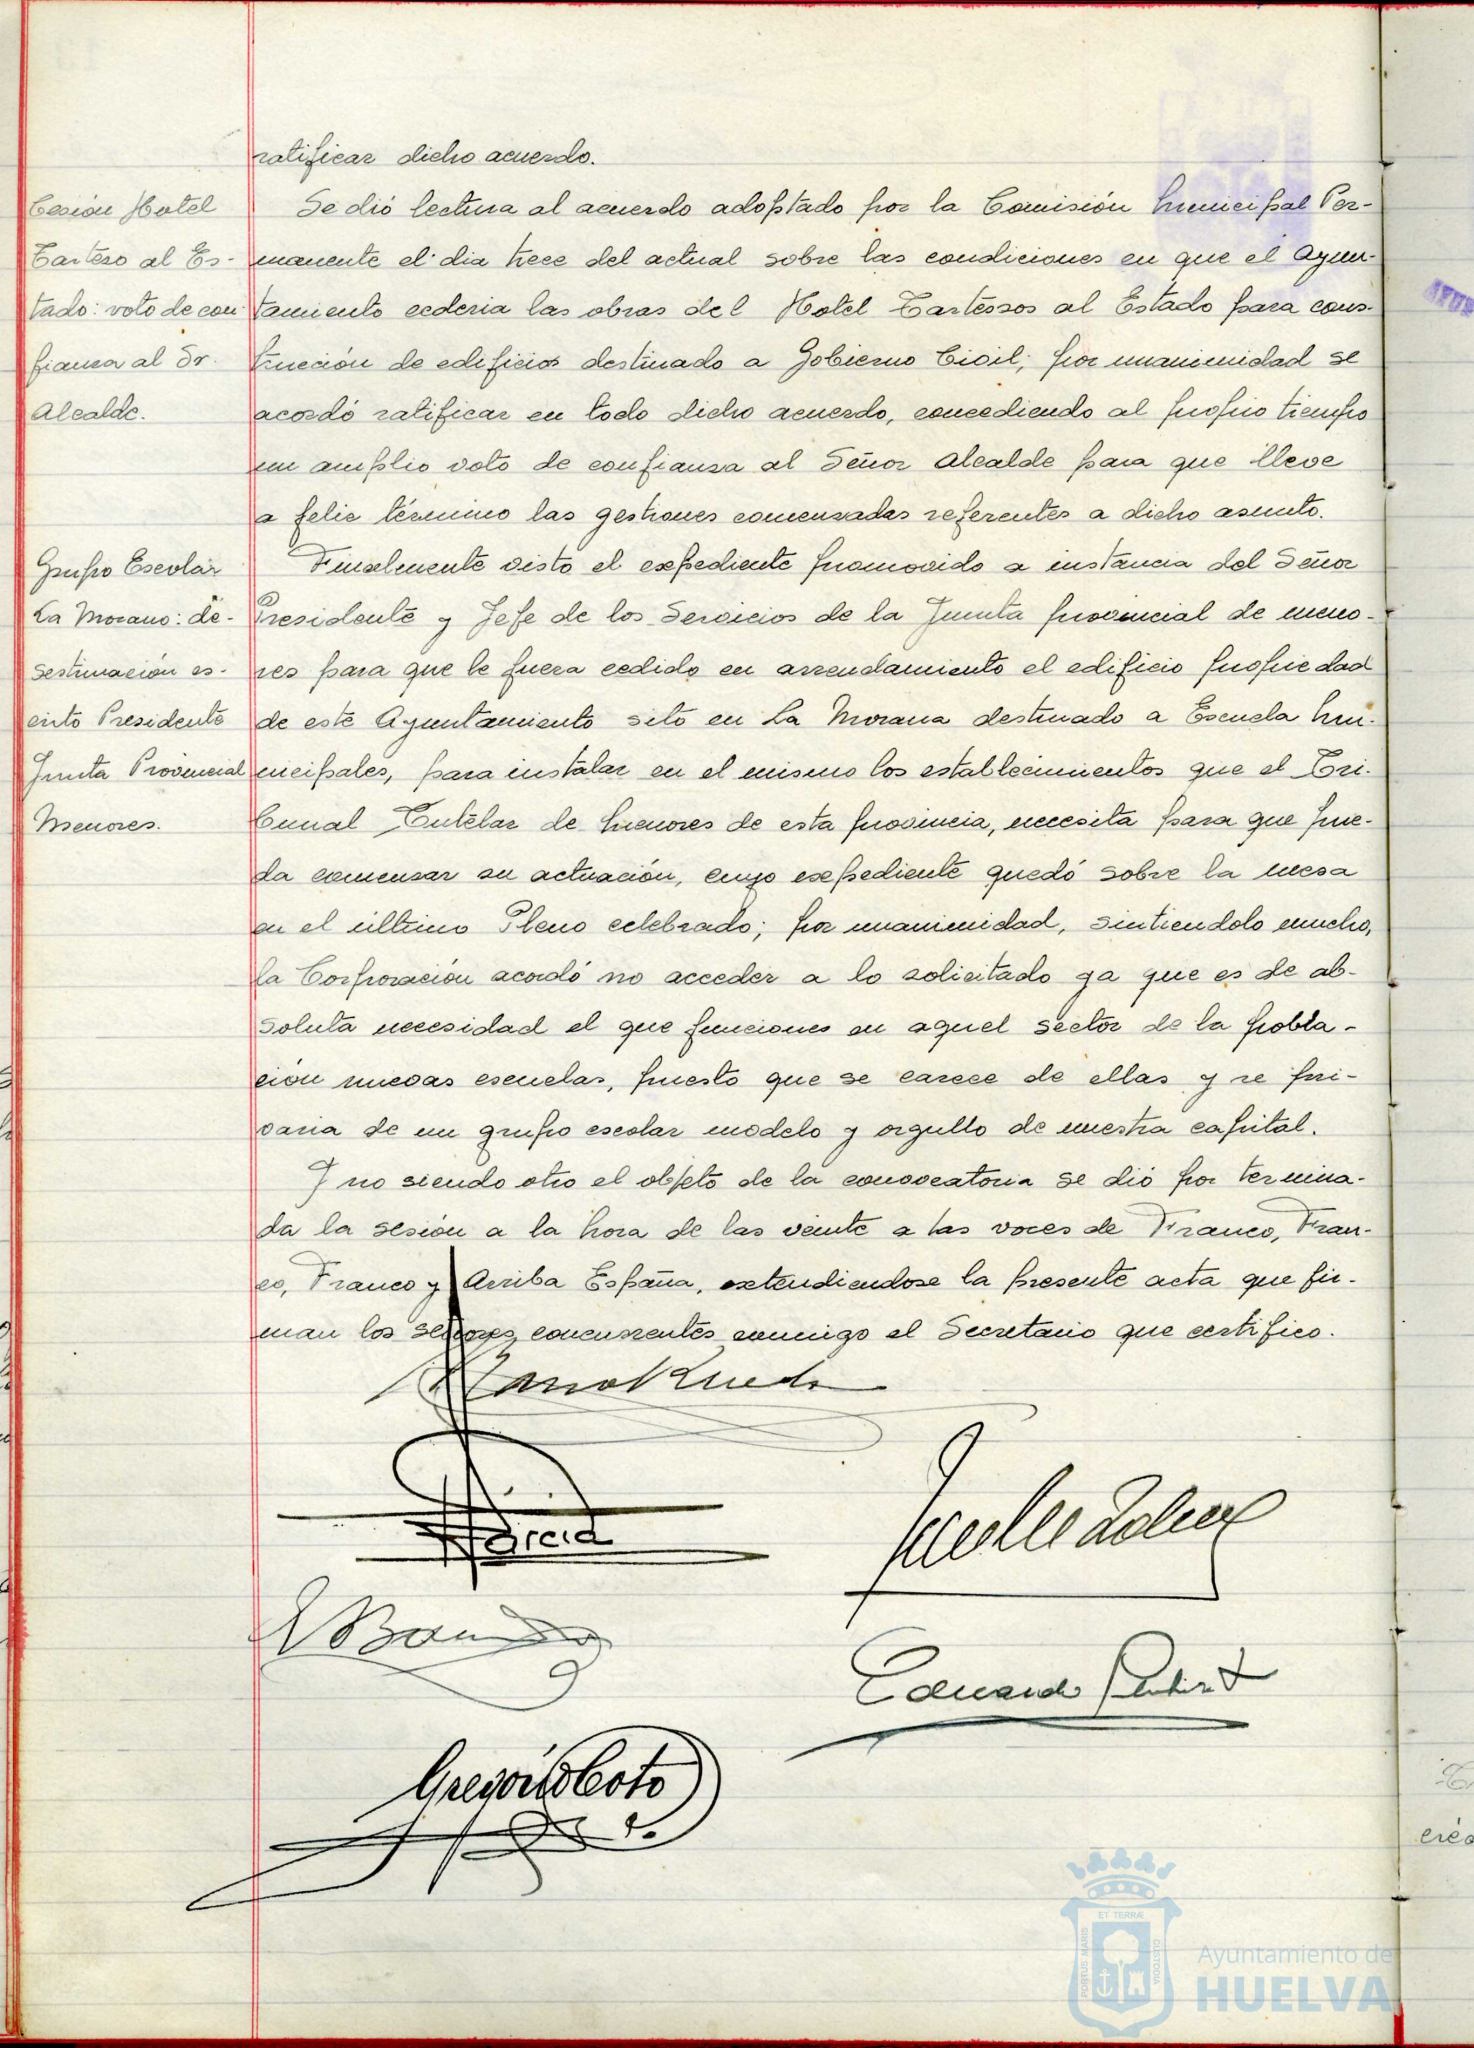 ratificar dicho acuerdo.
Cesión Hotel
Tarteso al Es-
tado: voto de con
fianza al Sr.
Alcalde.
Se dió lectura al acuerdo adoptado por la Comisión Municipal Per-
manente el dia trece del actual sobre las condiciones en que el Ayun-
tamiento cederia las obras del Hotel Tartessos al Estado para cons-
trucción de edificios destinado a Gobierno Civil; por unanimidad se
acordó ratificar en todo dicho acuerdo, concediendo al propio tiempo
un amplio voto de confianza al Señor Alcalde para que lleve
a feliz término las gestiones comenzadas referentes a dicho asunto.
Grupo Escolar
La Morana: de-
sestimación es-
crito Presidente
Junta Provincial
Menores.
Finalmente visto el expediente promovido a instancia del Señor
Presidente y Jefe de los Servicios de la Junta provincial de meno-
res para que le fuera cedido en arrendamiento el edificio propiedad
de este Ayuntamiento sito en La Morana destinado a Escuela Mu-
nicipales, para instalar en el mismo los establecimientos que el Tri-
bunal Tutelar de Menores de esta provincia, necesita para que pue-
da comenzar su actuación, cuyo expediente quedó sobre la mesa
en el último Pleno celebrado; por unanimidad, sintiendolo mucho,
la Corporación acordó no acceder a lo solicitado ya que es de ab-
soluta necesidad el que funciones en aquel sector de la pobla-
ción nuevas escuelas, puesto que se carece de ellas y se pri-
varia de un grupo escolar modelo y orgullo de nuestra capital.
Y no siendo otro el objeto de la convocatoria se dió por termina-
da la sesión a la hora de las veinte a las voces de Franco, Fran-
co, Franco y Arriba España, extendiendose la presente acta que fir-
man los señores concurrentes conmigo el Secretario que certifico.
Garcia
Eduardo
Gregorio Coto
ET TERRÆ
PORTUS MARIS
CUSTODIA
Ayuntamiento de
HUELVA